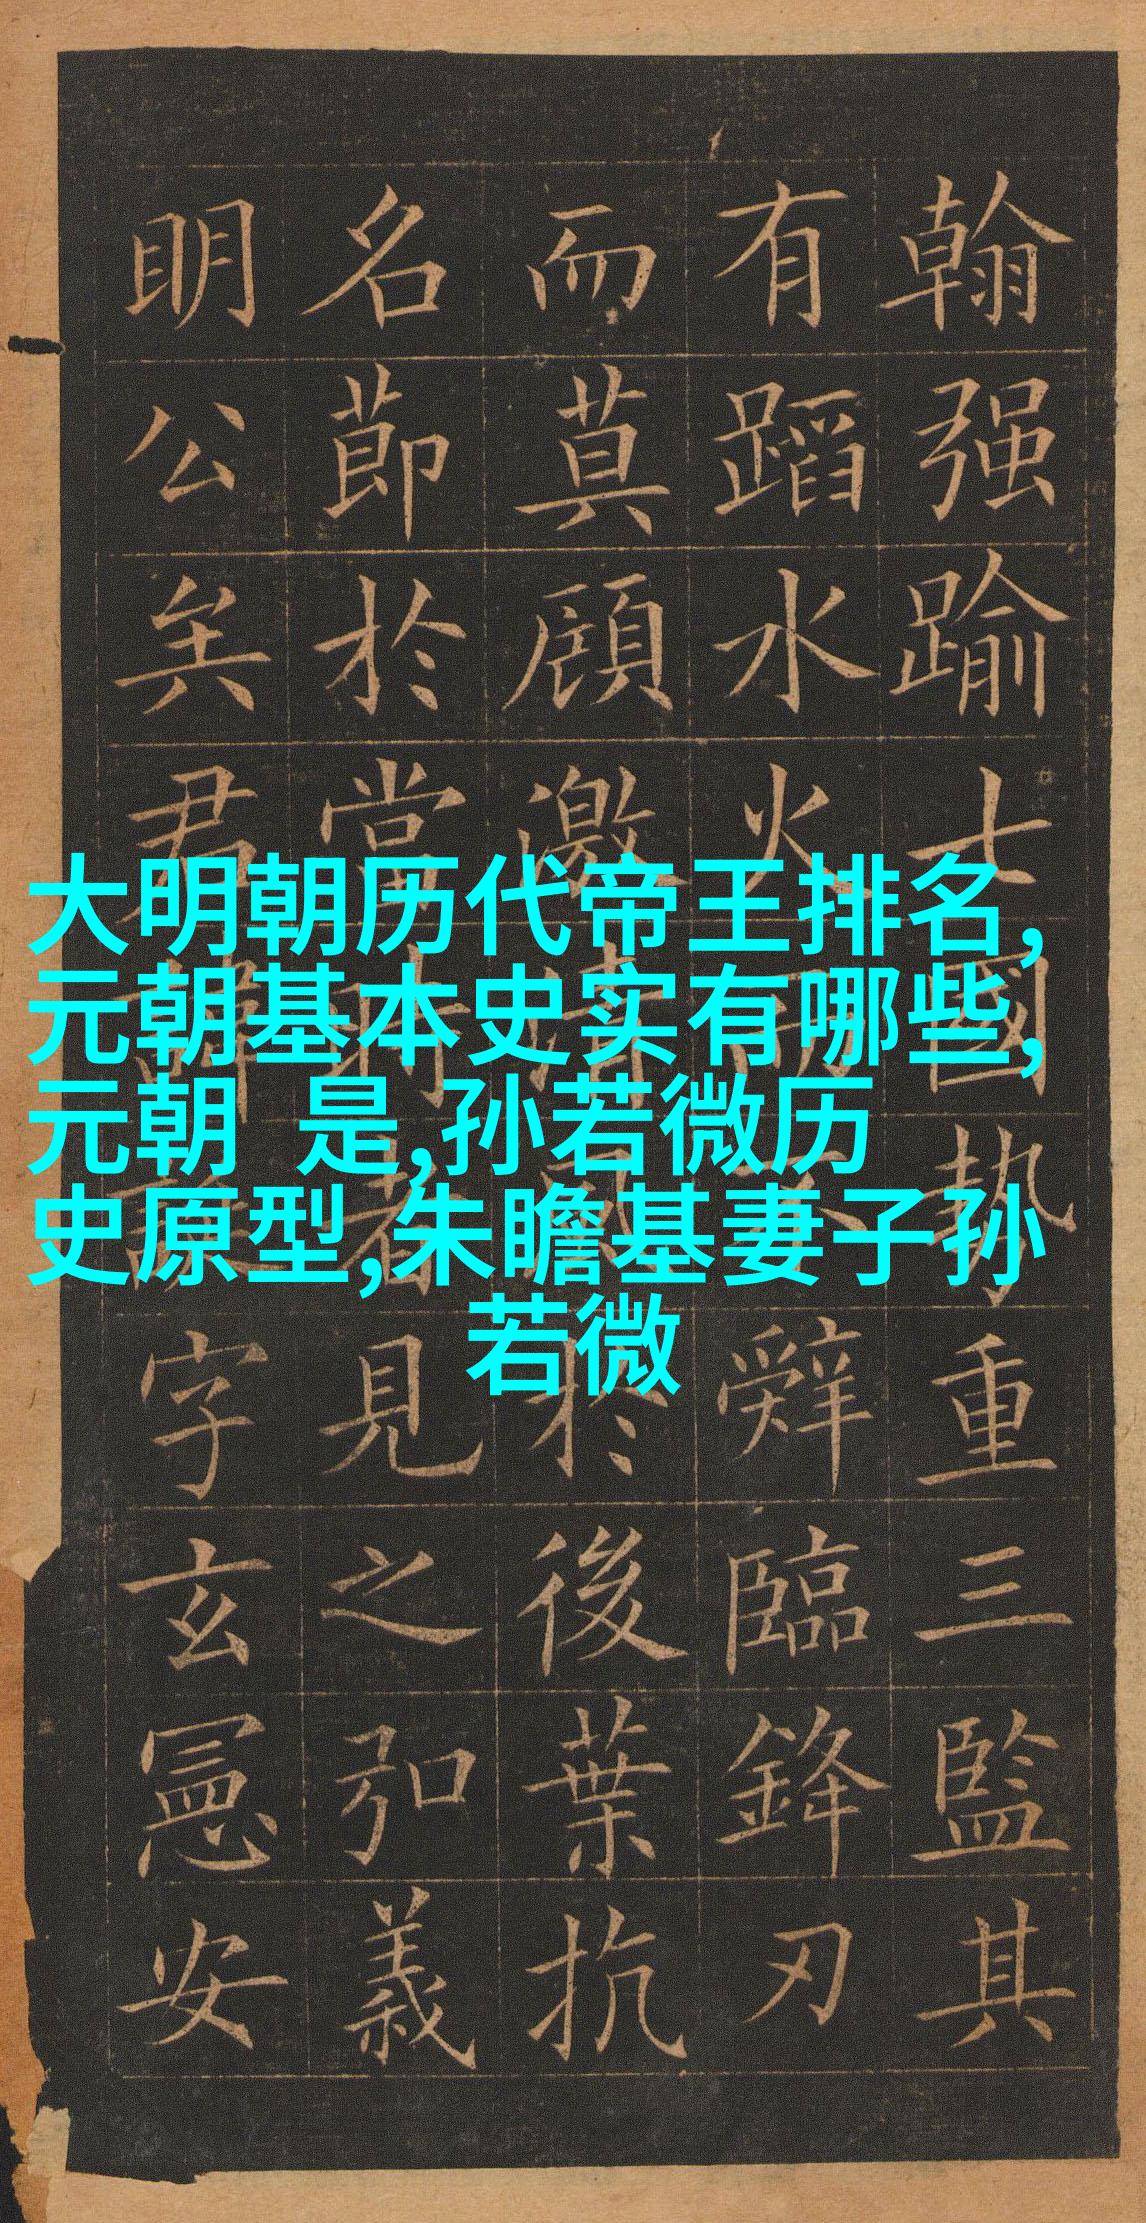 大明朝历代帝王排名,
元朝基本史实有哪些,
元朝 是,孙若微历
史原型,朱瞻基妻子孙
若微
翰强踰十國勢重三監其
有蹈水火辭臨鋒刃
而莫顧激於後葉抗
名節於當時者見之弘義
明公矣君諱誕字玄憲安